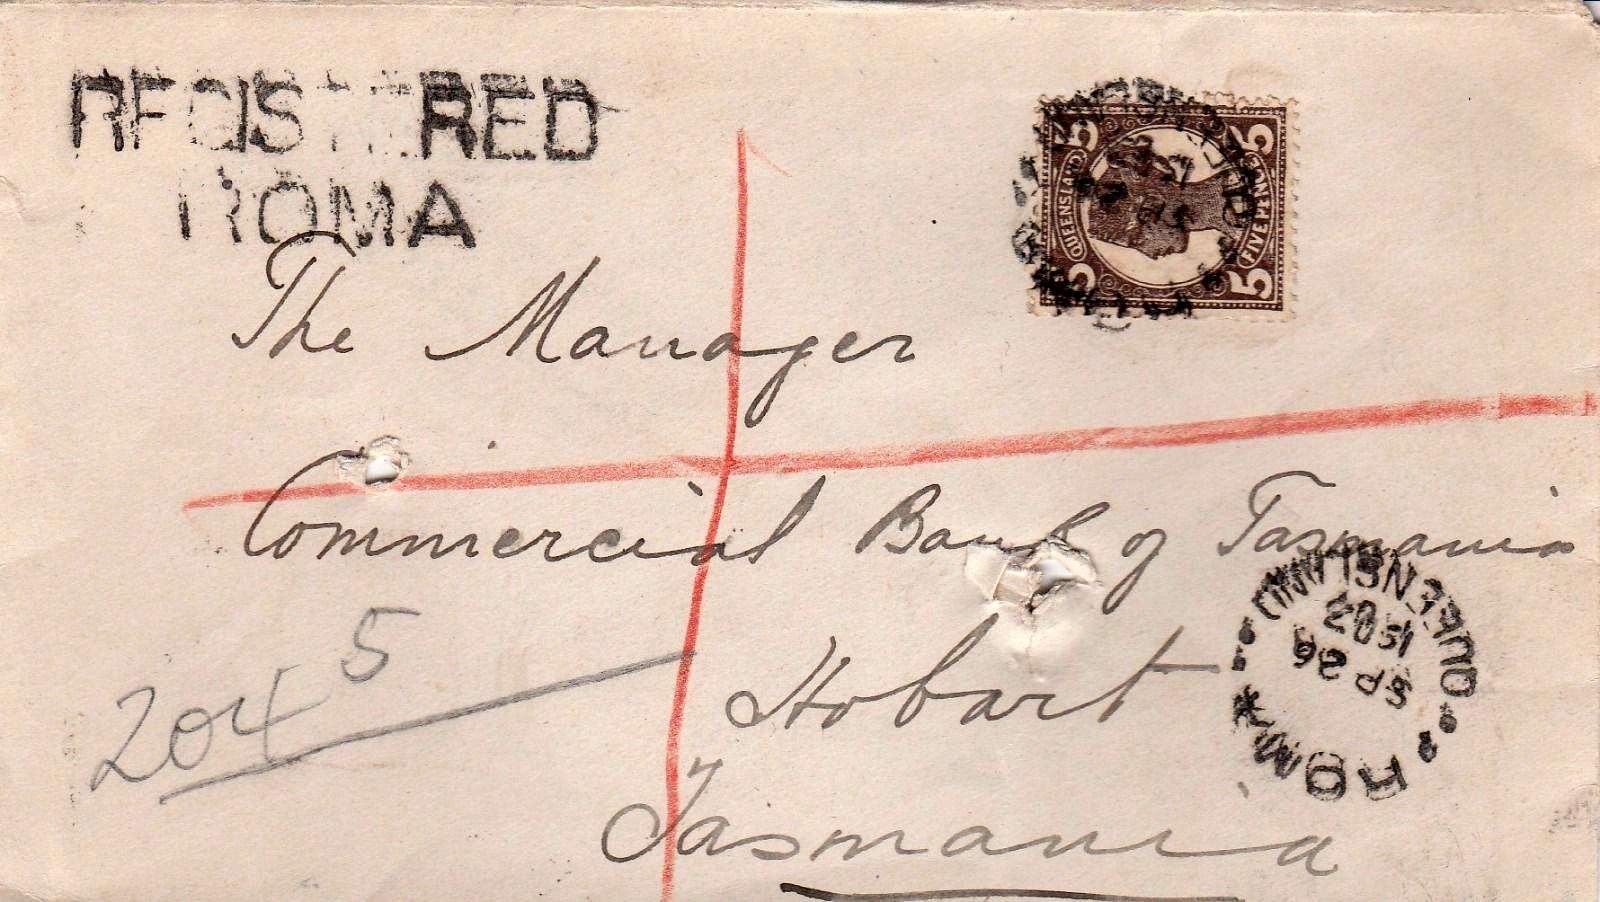 REGISTERED
ROMA
5 QUEENSLAND 5
5 FIVE PENCE 5
The Manager
Commercial Bank of Tasmania
Hobart
Tasmania
204 5
ROMA
SP 26
QUEENSLAND